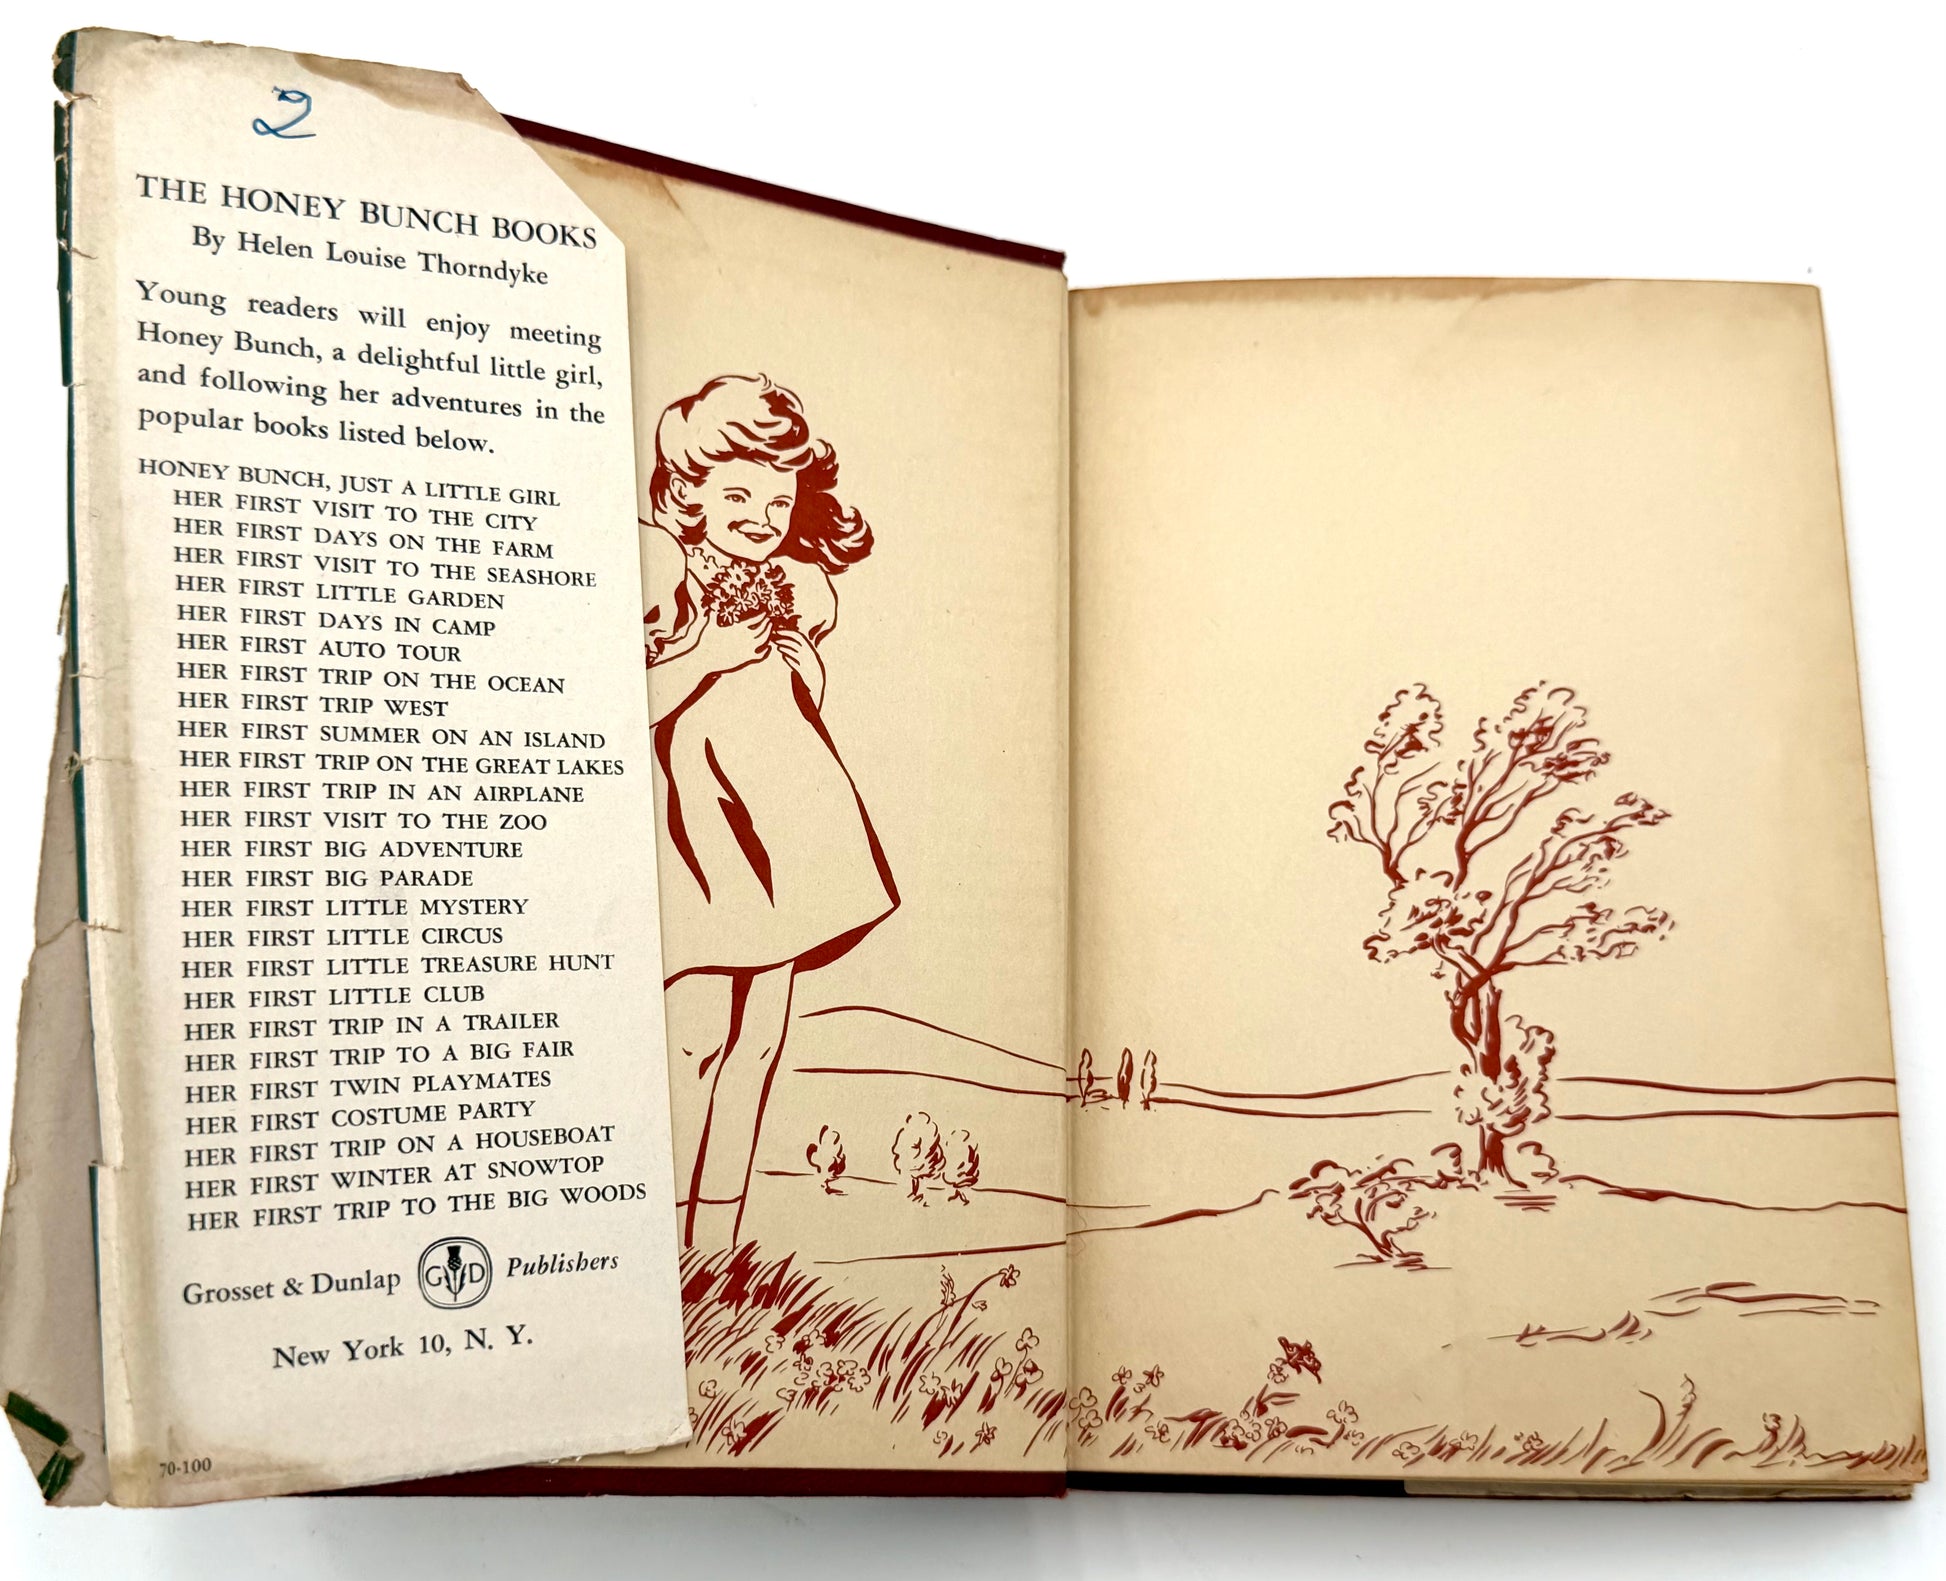 2
THE HONEY BUNCH BOOKS
By Helen Louise Thorndyke
Young readers will enjoy meeting
Honey Bunch, a delightful little girl,
and following her adventures in the
popular books listed below.
HONEY BUNCH, JUST A LITTLE GIRL
HER FIRST VISIT TO THE CITY
HER FIRST DAYS ON THE FARM
HER FIRST VISIT TO THE SEASHORE
HER FIRST LITTLE GARDEN
HER FIRST DAYS IN CAMP
HER FIRST AUTO TOUR
HER FIRST TRIP ON THE OCEAN
HER FIRST TRIP WEST
HER FIRST SUMMER ON AN ISLAND
HER FIRST TRIP ON THE GREAT LAKES
HER FIRST TRIP IN AN AIRPLANE
HER FIRST VISIT TO THE ZOO
HER FIRST BIG ADVENTURE
HER FIRST BIG PARADE
HER FIRST LITTLE MYSTERY
HER FIRST LITTLE CIRCUS
HER FIRST LITTLE TREASURE HUNT
HER FIRST LITTLE CLUB
HER FIRST TRIP IN A TRAILER
HER FIRST TRIP TO A BIG FAIR
HER FIRST TWIN PLAYMATES
HER FIRST COSTUME PARTY
HER FIRST TRIP ON A HOUSEBOAT
HER FIRST WINTER AT SNOWTOP
HER FIRST TRIP TO THE BIG WOODS
Grosset & Dunlap G D Publishers
New York 10, N. Y.
70-100